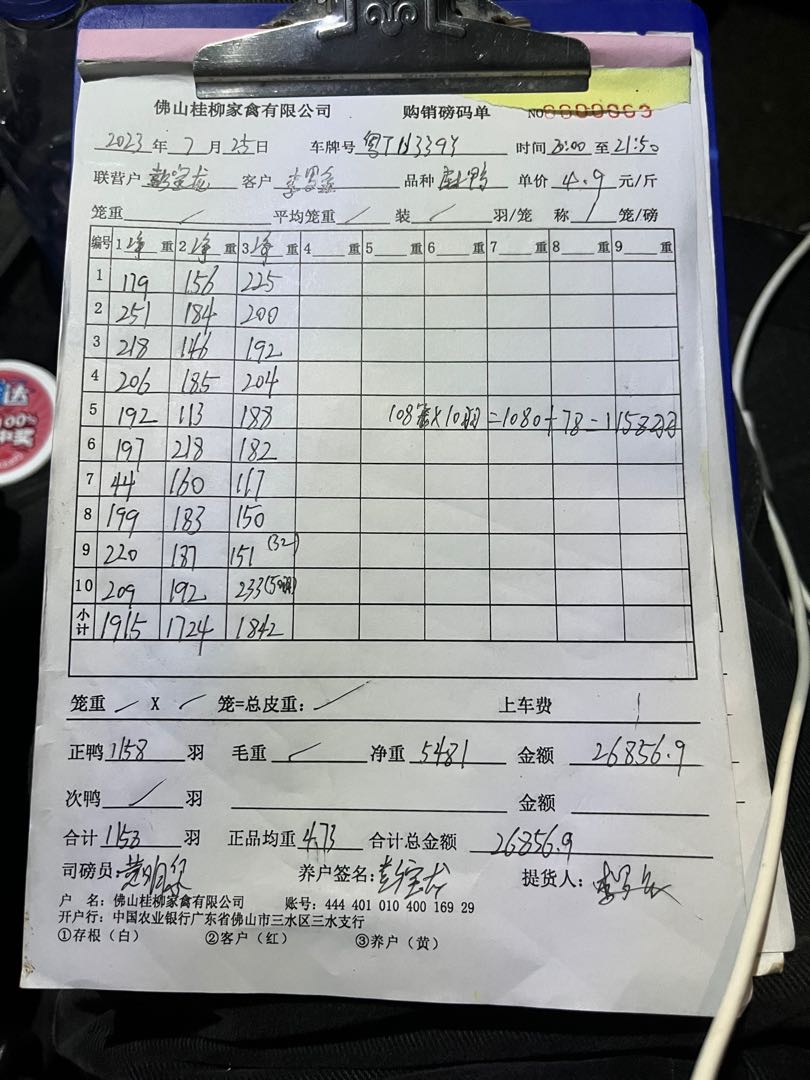 佛山桂柳家禽有限公司 购销磅码单 NO 0000063
2023年7月25日 车牌号 粤TN339Y 时间 20:00 至 21:50
联营户 客户 品种 单价 4.9 元/斤
笼重 / 平均笼重 / 装 / 羽/笼 称 / 笼/磅
编号 1 净 重 2 净 重 3 净 重 4 重 5 重 6 重 7 重 8 重 9 重
1 179 156 225
2 251 184 200
3 218 146 192
4 206 185 204
5 192 113 188 108笼×10羽=1080+78=1158羽
6 197 218 182
7 44 160 117
8 199 183 150
9 220 187 151 (32)
10 209 192 233 (50羽)
小计 1915 1724 1842
笼重 / X / 笼=总皮重: / 上车费 /
正鸭 1158 羽 毛重 / 净重 5481 金额 26856.9
次鸭 / 羽 金额
合计 1158 羽 正品均重 4.73 合计总金额 26856.9
司磅员: 养户签名: 提货人:
户 名: 佛山桂柳家禽有限公司 账号: 444 401 010 400 169 29
开户行: 中国农业银行广东省佛山市三水区三水支行
①存根(白) ②客户(红) ③养户(黄)
达
100%
中奖